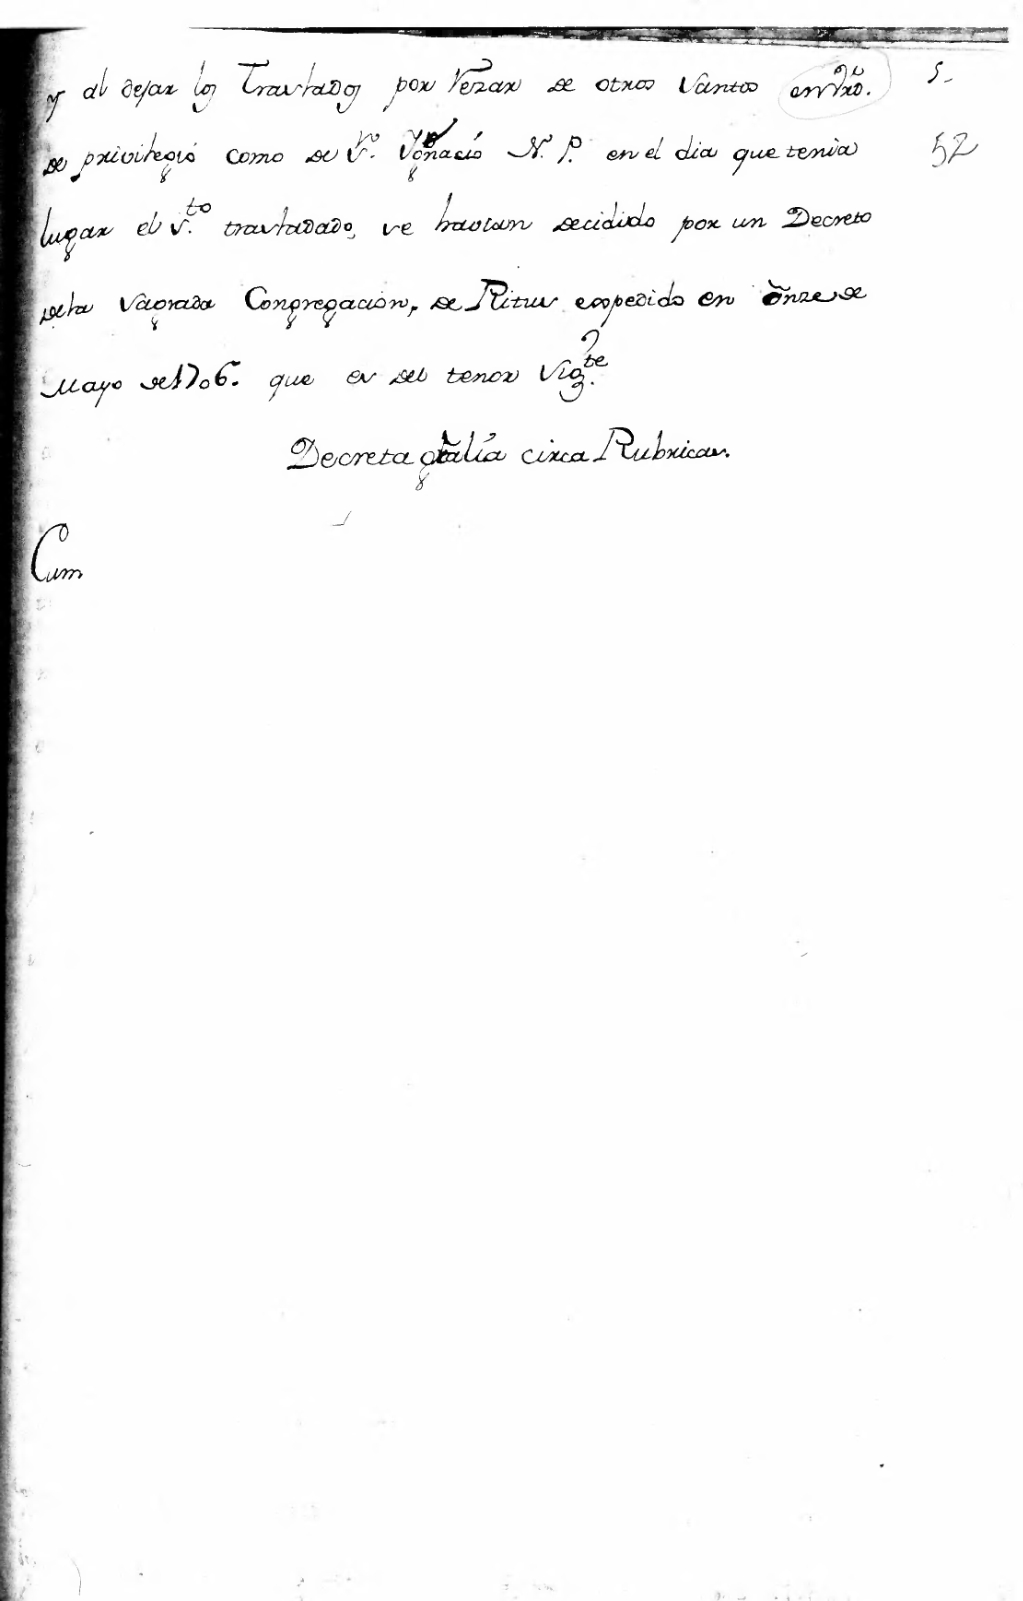 y al dejar los Trasladados por Rezar de otros Santos 5.
de privilegio como de S.ⁿ Ygnacio N. P. en el dia que tenia 52
lugar el S.ᵗᵒ trasladado, se havian decidido por un Decreto
dela Sagrada Congregacion, de Ritus expedido en onze de
Mayo de 1706. que es del tenor Sig.ᵗᵉ
Decreta gralia circa Rubricas.
Cum